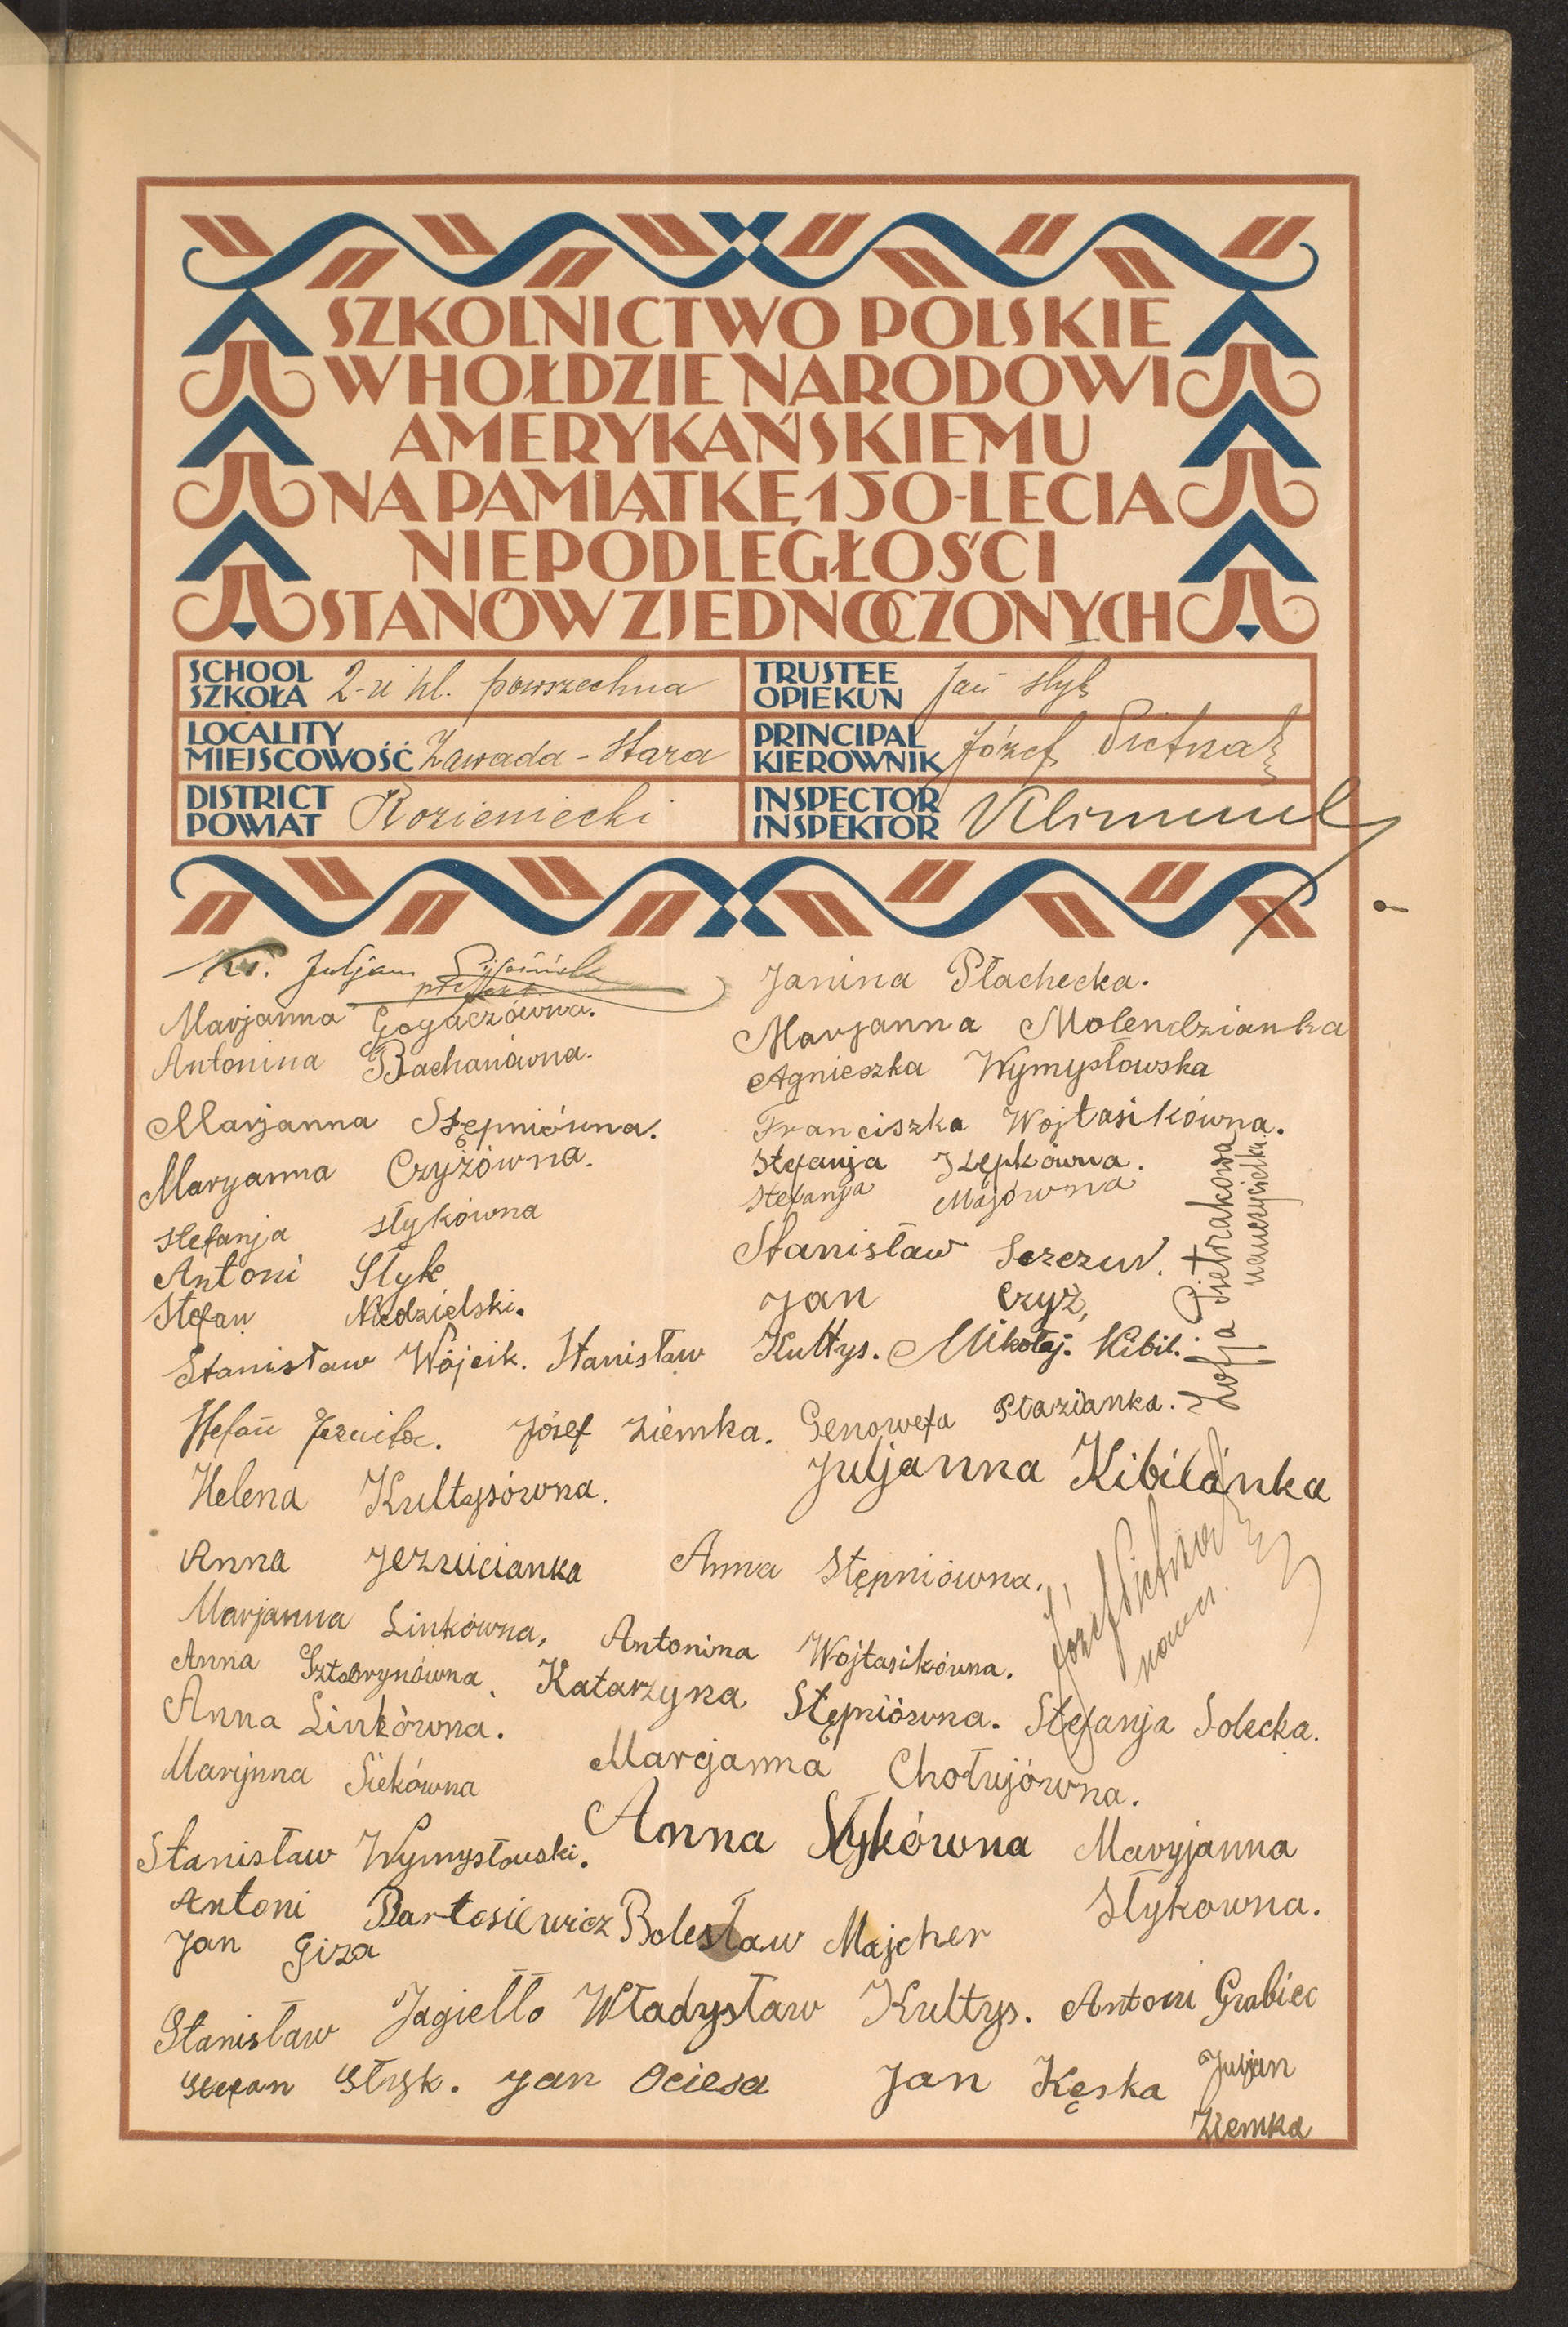 SZKOLNICTWO POLSKIE
W HOŁDZIE NARODOWI
AMERYKAŃSKIEMU
NA PAMIĄTKĘ 150-LECIA
NIEPODLEGŁOŚCI
STANÓW ZJEDNOCZONYCH
SCHOOL
SZKOŁA 2-u kl. powszechna
TRUSTEE
OPIEKUN Jan Styk
LOCALITY
MIEJSCOWOŚĆ Zawada - Stara
PRINCIPAL
KIEROWNIK Józef Pietrak
DISTRICT
POWIAT Kozieniecki
INSPECTOR
INSPEKTOR
Ks. Juljan
prefekt
Janina Płachecka.
Marjanna Gogaczówna.
Marjanna Molendzianka
Antonina Bachanówna.
Agnieszka Wymysłowska
Marjanna Stępniówna.
Franciszka Wojtasikówna.
Maryanna Czyżówna.
Stefanja Stępkówna.
Stefanja Majówna
Stefanja Stykówna
Stanisław
Antoni Styk
Jan Czyż,
Stefan Niedzielski.
Zofja Pietrakowa
nauczycielka
Stanisław Wójcik. Stanisław Kultys. Mikołaj. Kibil.
Stefan Józef Ziemka. Genowefa Ptazianka.
Helena Kultysówna.
Juljanna Kibilanka
Anna Jezuicianka Anna Stępniówna.
Józef Pietrak
naucz.
Marjanna Linkówna, Antonina Wojtasikówna.
Anna Sztobrynówna, Katarzyna Stępniówna. Stefanja Solecka.
Anna Linkówna.
Marijnna Siekówna Marcjanna Chołujówna.
Anna Stykówna Maryjanna
Stykowna.
Stanisław Wymysłowski.
Antoni Bartosiewicz Bolesław Majcher
Jan Giza
Stanisław Jagiełło Władysław Kultys. Antoni Grabiec
Stefan Styk. Jan Ociesa Jan Kęska Juljan
Ziemka